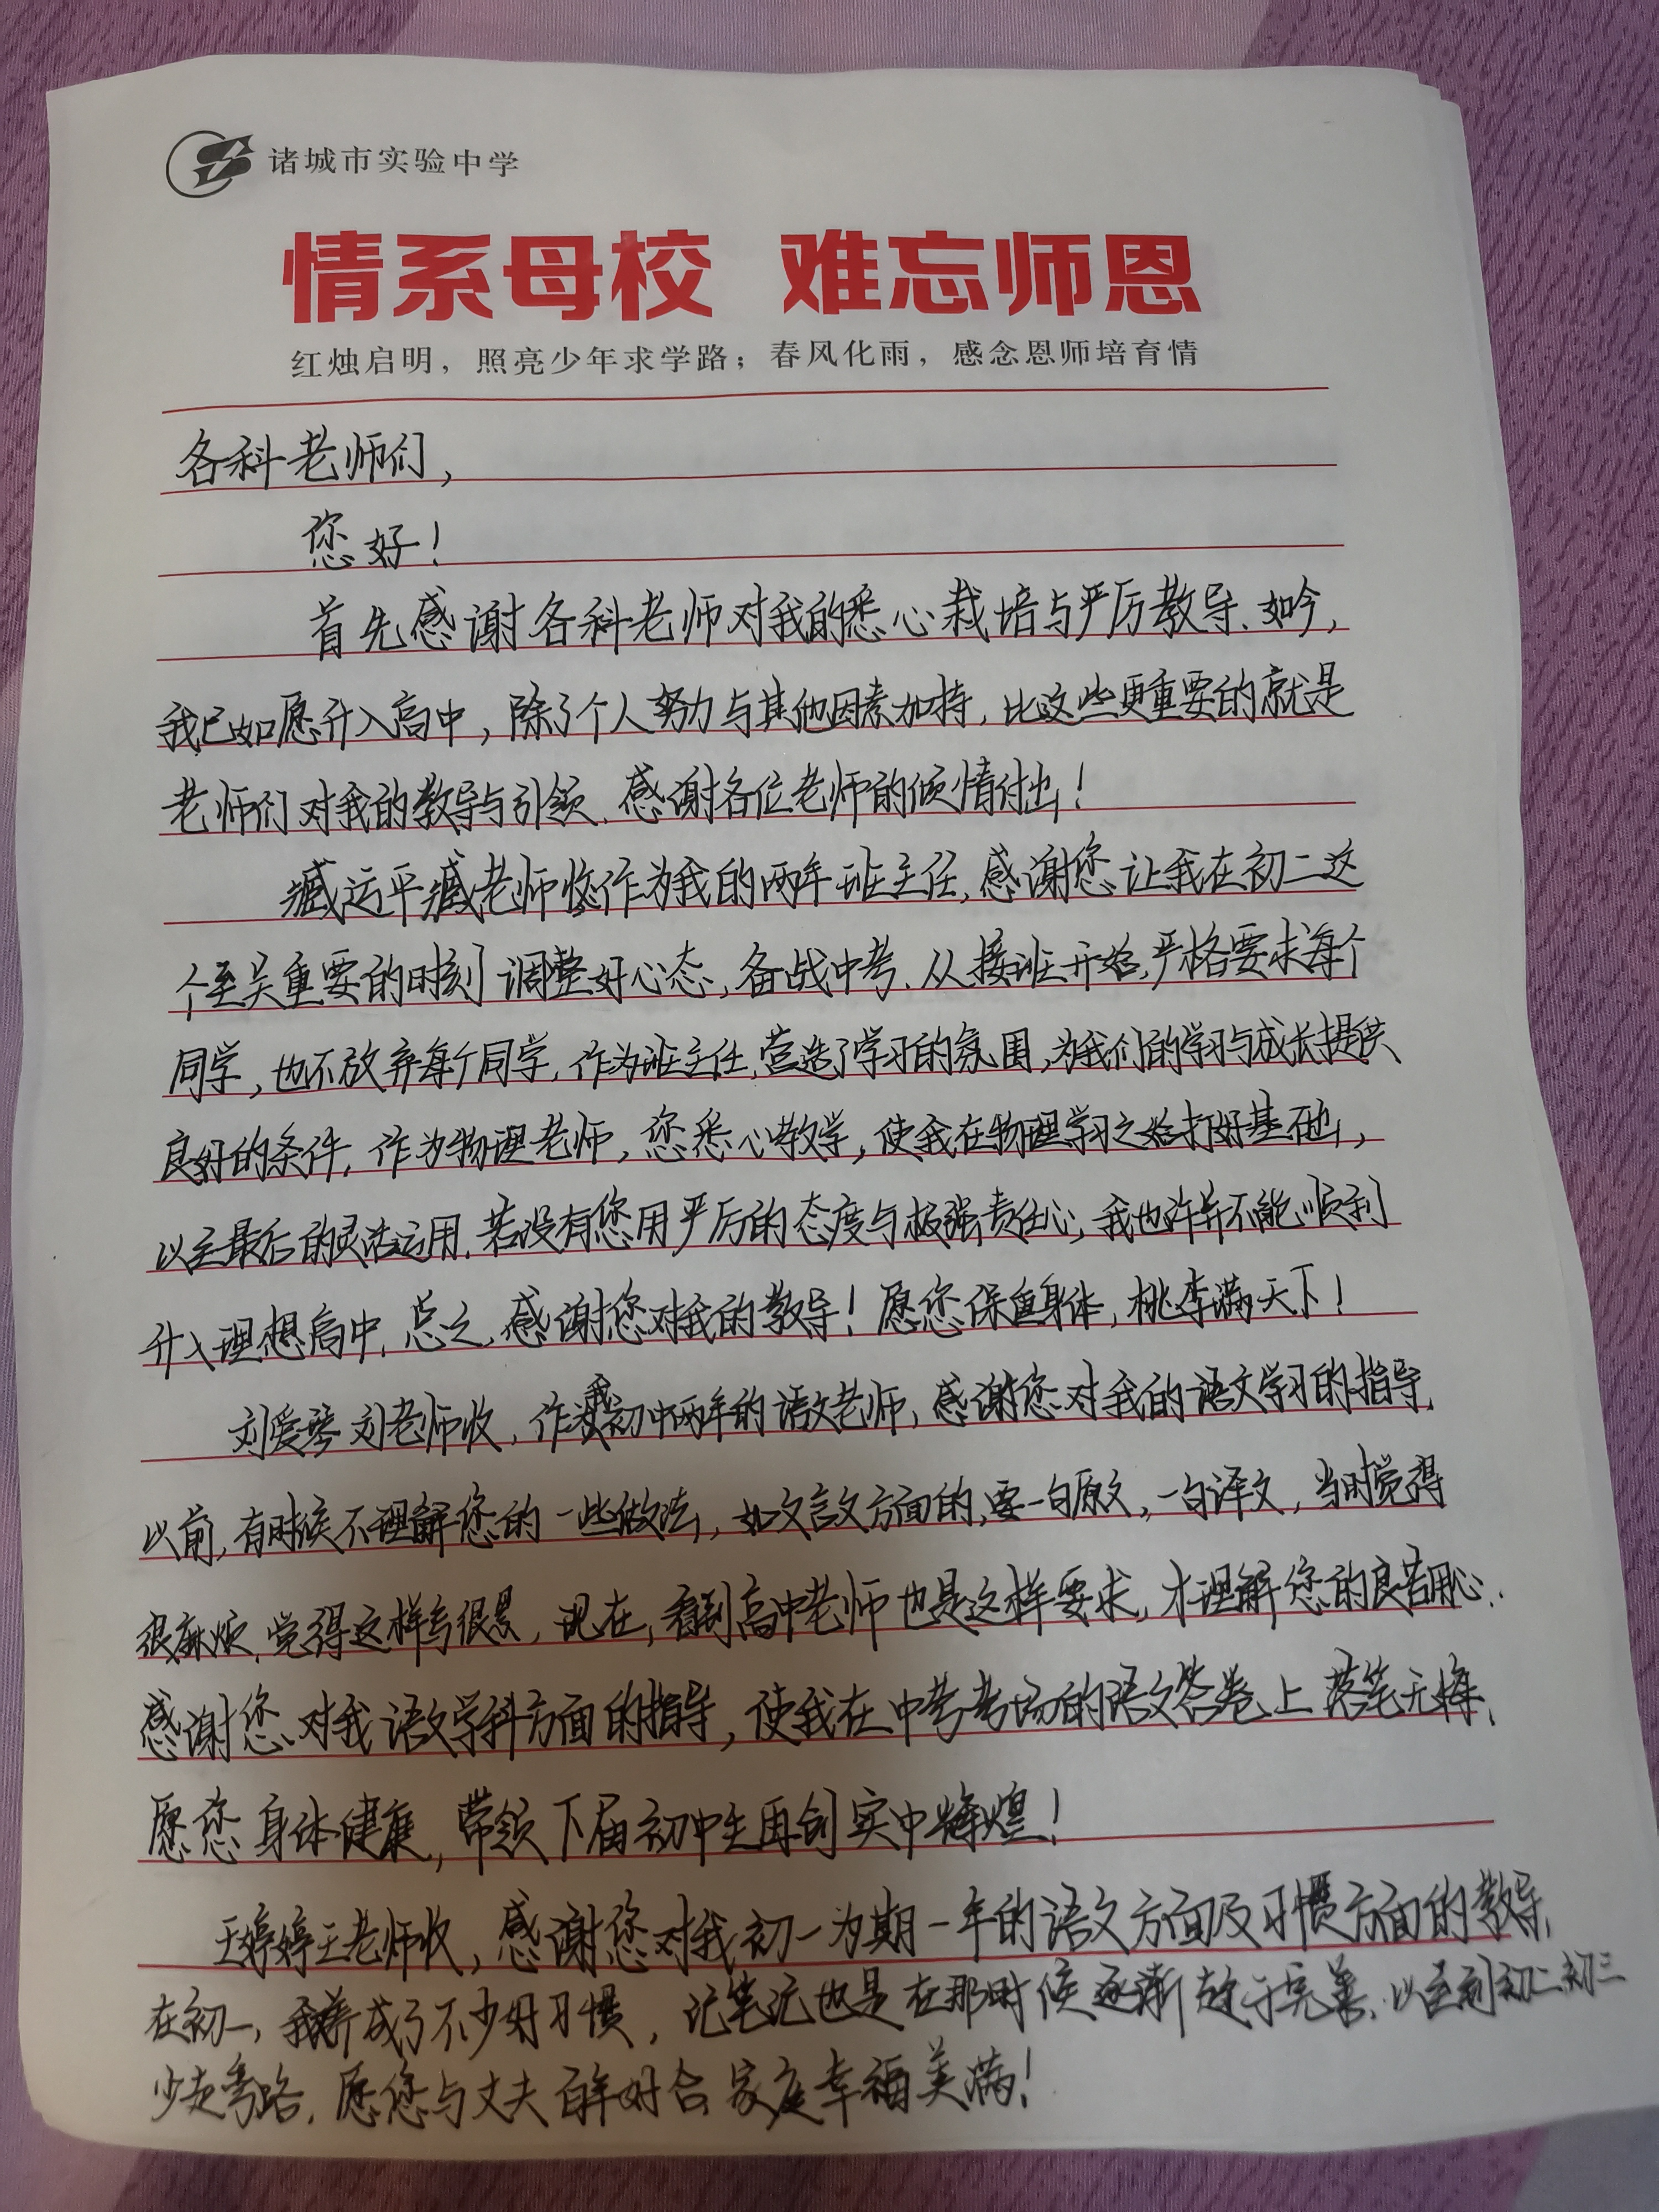 诸城市实验中学
情系母校 难忘师恩
红烛启明，照亮少年求学路；春风化雨，感念恩师培育情
各科老师们，
您好！
首先感谢各科老师对我的悉心栽培与严厉教导.如今，
我已如愿升入高中，除了个人努力与其他因素加持，比这些更重要的就是
老师们对我的教导与引领.感谢各位老师的倾情付出！
臧运平臧老师收作为我的两年班主任,感谢您让我在初二这
个至关重要的时刻调整好心态,备战中考.从接班开始,严格要求每个
同学，也不放弃每个同学.作为班主任,营造了学习的氛围,为我们的学习与成长提供
良好的条件.作为物理老师，您悉心教学，使我在物理学习之始打好基础，
以至最后的灵活运用.若没有您用严厉的态度与极强责任心,我也许并不能顺利
升入理想高中.总之,感谢您对我的教导！愿您保重身体，桃李满天下！
刘爱琴刘老师收，作为我初中两年的语文老师，感谢您对我的语文学习的指导.
以前,有时候不理解您的一些做法，如文言文方面的,要一句原文，一句译文，当时觉得
很麻烦,觉得这样写很累，现在,看到高中老师也是这样要求，才理解您的良苦用心.
感谢您对我语文学科方面的指导，使我在中考考场的语文答卷上落笔无悔.
愿您身体健康，带领下届初中生再创实中辉煌！
王婷婷王老师收，感谢您对我初一为期一年的语文方面及习惯方面的教导.
在初一，我养成了不少好习惯，记笔记也是在那时候逐渐趋于完善.以至到初二初三
少走弯路.愿您与丈夫百年好合家庭幸福美满！